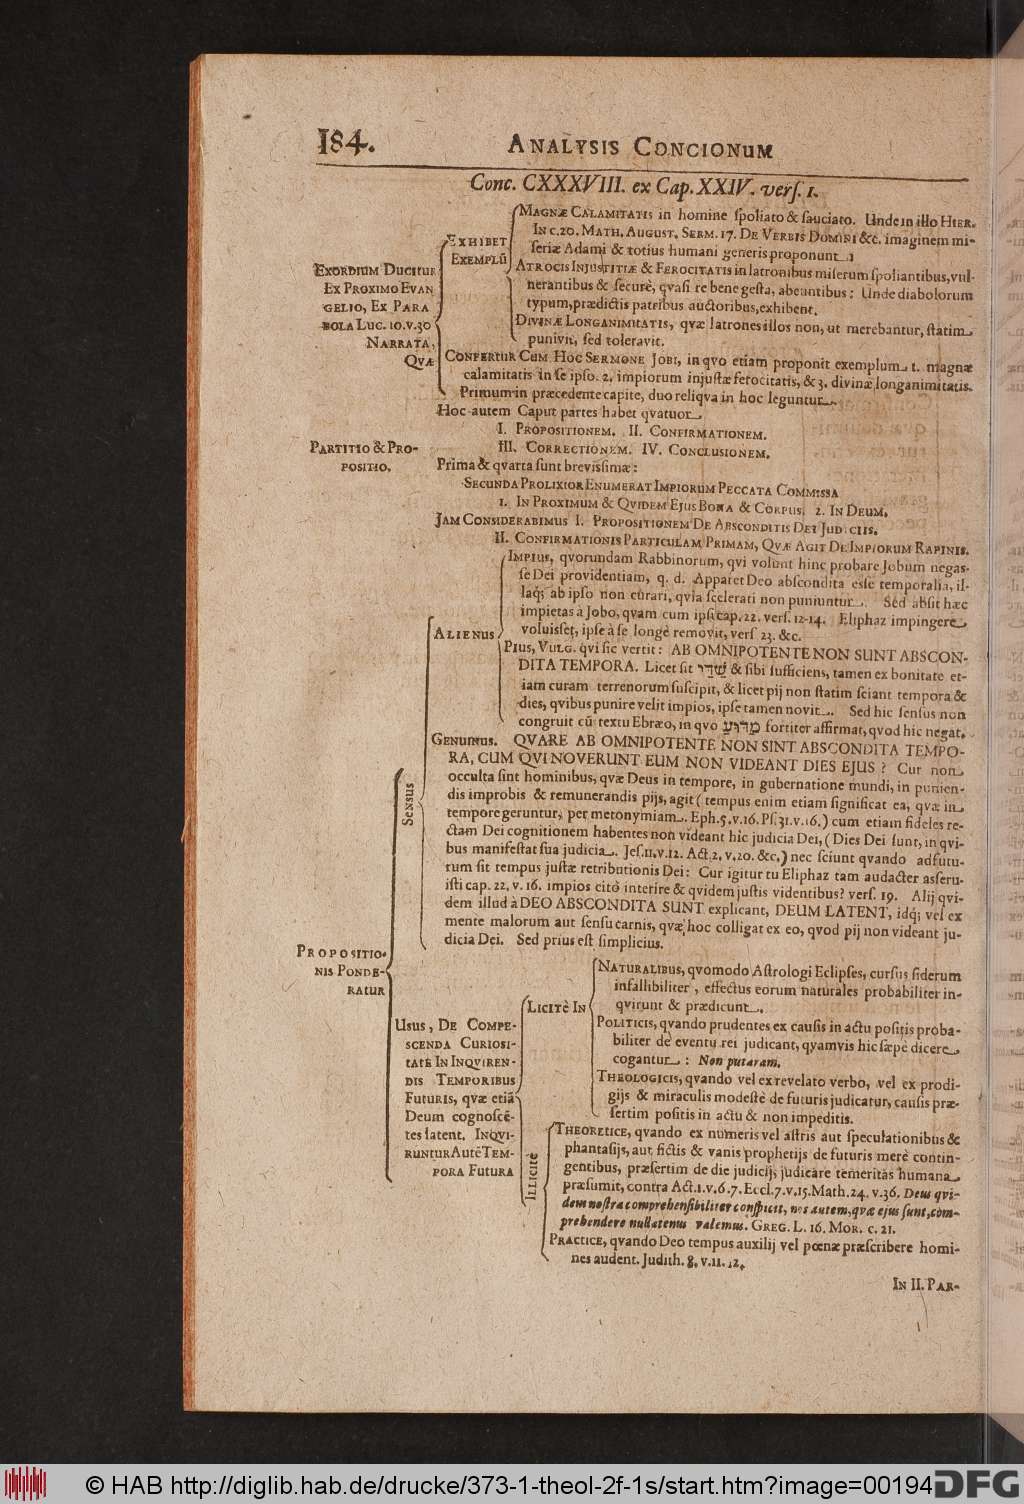 184.
ANALYSIS CONCIONUM
Conc. CXXXVIII. ex Cap. XXIV. verſ. 1.
EXORDIUM DUCITUR
EX PROXIMO EVAN
GELIO, EX PARA
BOLA LUC. 10. v. 30
NARRATA,
QVÆ
EXHIBET
EXEMPLŪ
MAGNÆ CALAMITATIS in homine ſpoliato & ſauciato. Unde in illo HIER.
IN c. 20. MATH. AUGUST. SERM. 17. DE VERBIS DOMINI &c. imaginem mi-
ſeriæ Adami & totius humani generis proponunt.
ATROCIS INJUSTITIÆ & FEROCITATIS in latronibus miſerum ſpoliantibus, vul-
nerantibus & ſecurè, qvaſi re bene geſta, abeuntibus: Unde diabolorum
typum, prædictis patribus auctoribus, exhibent.
DIVINÆ LONGANIMITATIS, qvæ latrones illos non, ut merebantur, ſtatim
punivit, ſed toleravit.
CONFERTUR CUM HOC SERMONE JOBI, in qvo etiam proponit exemplum 1. magnæ
calamitatis in ſe ipſo. 2. impiorum injuſtæ ferocitatis, & 3. divinæ longanimitatis.
Primum in præcedente capite, duo reliqva in hoc leguntur.
PARTITIO & PRO-
POSITIO.
Hoc autem Caput partes habet qvatuor
I. PROPOSITIONEM. II. CONFIRMATIONEM.
III. CORRECTIONEM. IV. CONCLUSIONEM.
Prima & qvarta ſunt breviſſimæ:
SECUNDA PROLIXIOR ENUMERAT IMPIORUM PECCATA COMMISSA
1. IN PROXIMUM & QVIDEM EJUS BONA & CORPUS. 2. IN DEUM.
JAM CONSIDERABIMUS I. PROPOSITIONEM DE ABSCONDITIS DEI JUDICIIS.
II. CONFIRMATIONIS PARTICULAM PRIMAM, QVÆ AGIT DE IMPIORUM RAPINIS.
PROPOSITIO-
NIS PONDE-
RATUR
SENSUS
ALIENUS
IMPIUS, qvorundam Rabbinorum, qvi volunt hinc probare Jobum negaſ-
ſe Dei providentiam, q. d. Apparet Deo abſcondita eſſe temporalia, il-
laq; ab ipſo non curari, qvia ſcelerati non puniuntur. Sed abſit hæc
impietas à Jobo, qvam cum ipſi cap. 22. verſ. 12-14. Eliphaz impingere
voluiſſet, ipſe à ſe longè removit, verſ 23. &c.
PIUS, VULG. qvi ſic vertit: AB OMNIPOTENTE NON SUNT ABSCON-
DITA TEMPORA. Licet ſit שַׁדַּי & ſibi ſufficiens, tamen ex bonitate et-
iam curam terrenorum ſuſcipit, & licet pij non ſtatim ſciant tempora &
dies, qvibus punire velit impios, ipſe tamen novit. Sed hic ſenſus non
congruit cū textu Ebræo, in qvo מַדּוּעַ fortiter affirmat, qvod hic negat.
GENUINUS. QVARE AB OMNIPOTENTE NON SINT ABSCONDITA TEMPO-
RA, CUM QVI NOVERUNT EUM NON VIDEANT DIES EJUS? Cur non
occulta ſint hominibus, qvæ Deus in tempore, in gubernatione mundi, in punien-
dis improbis & remunerandis pijs, agit (tempus enim etiam ſignificat ea, qvæ in
tempore geruntur, per metonymiam. Eph. 5. v. 16. Pſ. 31. v. 16.) cum etiam fideles re-
ctam Dei cognitionem habentes non videant hic judicia Dei, (Dies Dei ſunt, in qvi-
bus manifeſtat ſua judicia. Jeſ. 11. v. 12. Act. 2. v. 20. &c.) nec ſciunt qvando adfutu-
rum ſit tempus juſtæ retributionis Dei: Cur igitur tu Eliphaz tam audacter aſſeru-
iſti cap. 22. v. 16. impios citò interire & qvidem juſtis videntibus? verſ. 19. Alij qvi-
dem illud à DEO ABSCONDITA SUNT explicant, DEUM LATENT, idq; vel ex
mente malorum aut ſenſu carnis, qvæ hoc colligat ex eo, qvod pij non videant ju-
dicia Dei. Sed prius eſt ſimplicius.
USUS, DE COMPE-
SCENDA CURIOSI-
TATE IN INQVIREN-
DIS TEMPORIBUS
FUTURIS, qvæ etiā
Deum cognoſcē-
tes latent. INQVI-
RUNTUR AUTĒ TEM-
PORA FUTURA
LICITÈ IN
NATURALIBUS, qvomodo Aſtrologi Eclipſes, curſus ſiderum
infallibiliter, effectus eorum naturales probabiliter in-
qvirunt & prædicunt.
POLITICIS, qvando prudentes ex cauſis in actu poſitis proba-
biliter de eventu rei judicant, qvamvis hic ſæpè dicere
cogantur: Non putaram.
THEOLOGICIS, qvando vel ex revelato verbo, vel ex prodi-
gijs & miraculis modeſtè de futuris judicatur, cauſis præ-
ſertim poſitis in actu & non impeditis.
ILLICITÈ
THEORETICE, qvando ex numeris vel aſtris aut ſpeculationibus &
phantaſijs, aut fictis & vanis prophetijs de futuris merè contin-
gentibus, præſertim de die judicij, judicare temeritas humana
præſumit, contra Act. 1. v. 6. 7. Eccl. 7. v. 15. Math. 24. v. 36. Deus qvi-
dem noſtra comprehenſibiliter conſpicit, nos autem, qvæ ejus ſunt, com-
prehendere nullatenus valemus. GREG. L. 16. MOR. c. 21.
PRACTICE, qvando Deo tempus auxilij vel pœnæ præſcribere homi-
nes audent. Judith. 8. v. 11. 12.
IN II. PAR-
© HAB http://diglib.hab.de/drucke/373-1-theol-2f-1s/start.htm?image=00194
DFG